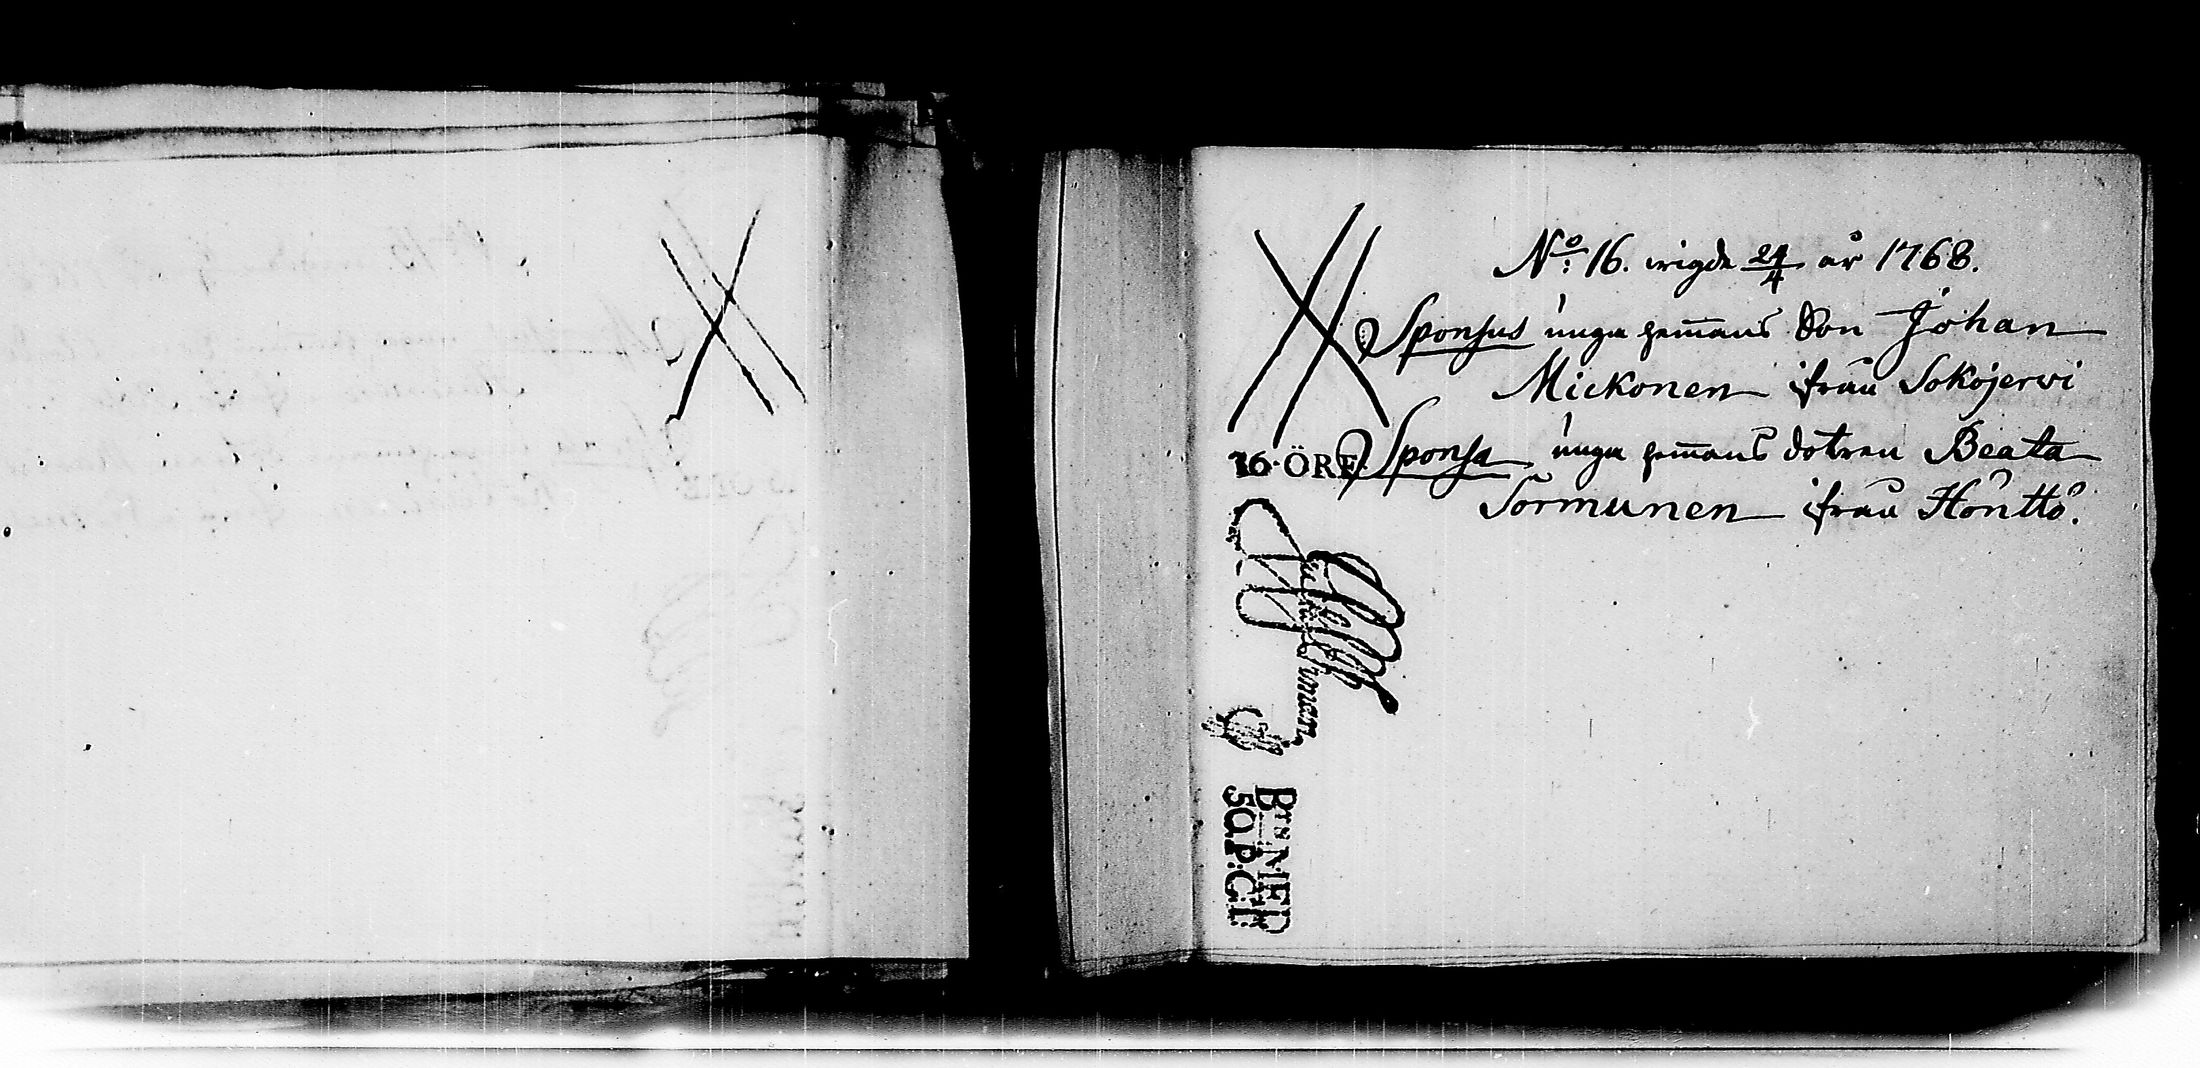 No: 16. wigde 24/4 år 1768.
Sponsus unga hem̄ans Son Johan
Mickonen ifrån Sokojerwi
Sponsa unga hem̄ans dotren Beata
Sormunen ifrån Honttö.
16 ÖRE.
Bts MED
50. P. C.